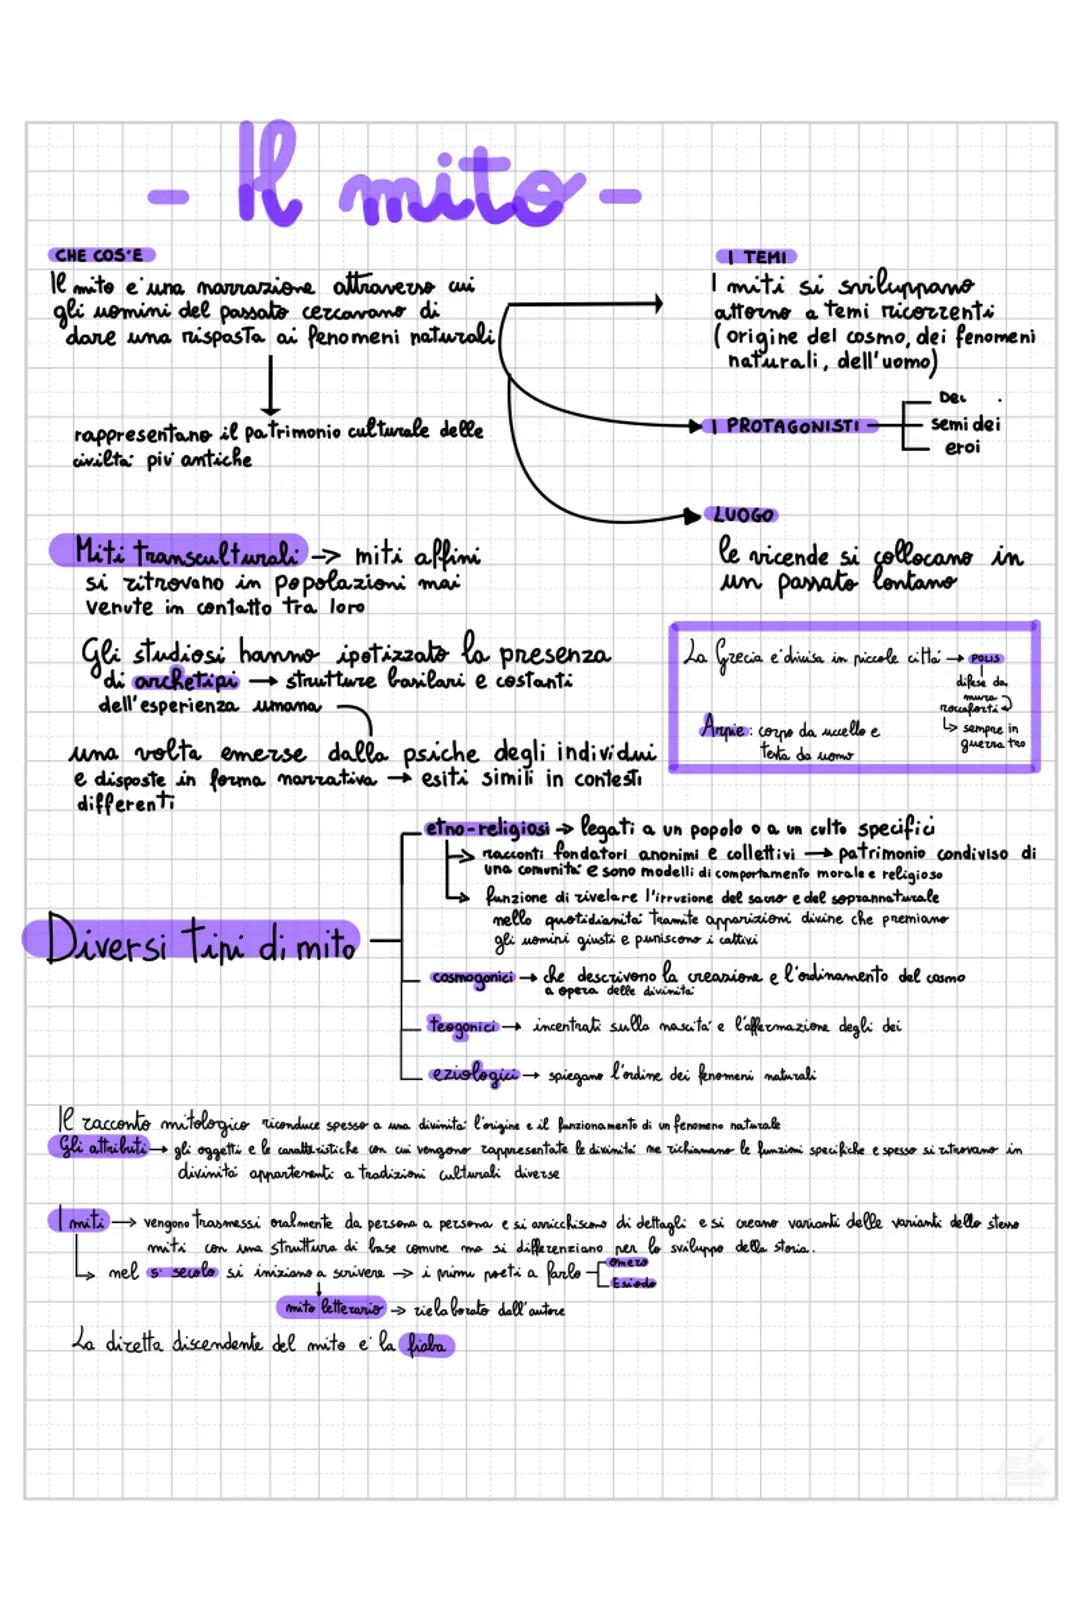 - Il mito -
CHE COS'E
Il mito e' una narrazione attraverso cui
gli uomini del passato cercavano di
dare una risposta ai fenomeni naturali
rappresentano il patrimonio culturale delle
civilta' piu' antiche
I TEMI
I miti si sviluppano
attorno a temi ricorrenti
(origine del cosmo, dei fenomeni
naturali, dell'uomo)
I PROTAGONISTI
Dei
semidei
eroi
LUOGO
le vicende si collocano in
un passato lontano
Miti transculturali -> miti affini
si ritrovano in popolazioni mai
venute in contatto tra loro
Gli studiosi hanno ipotizzato la presenza
di archetipi → strutture basilari e costanti
dell'esperienza umana
una volta emerse dalla psiche degli individui
e disposte in forma narrativa → esiti simili in contesti
differenti
La Grecia e' divisa in piccole citta' → POLIS
difese da
mura
roccaforti
↳ sempre in
guerra tra
Arpie: corpo da uccello e
testa da uomo
Diversi tipi di mito
etno-religiosi → legati a un popolo o a un culto specifici
→ racconti fondatori anonimi e collettivi → patrimonio condiviso di
una comunita' e sono modelli di comportamento morale e religioso
→ funzione di rivelare l'irruzione del sacro e del soprannaturale
nello quotidianita' tramite apparizioni divine che premiano
gli uomini giusti e puniscono i cattivi
cosmogonici → che descrivono la creazione e l'ordinamento del cosmo
a opera delle divinita'
teogonici → incentrati sulla nascita' e l'affermazione degli dei
eziologici → spiegano l'ordine dei fenomeni naturali
Il racconto mitologico riconduce spesso a una divinita' l'origine e il funzionamento di un fenomeno naturale
Gli attributi → gli oggetti e le caratteristiche con cui vengono rappresentate le divinita' ne richiamano le funzioni specifiche e spesso si ritrovano in
divinita' appartenenti a tradizioni culturali diverse
I miti → vengono trasmessi oralmente da persona a persona e si arricchiscono di dettagli e si creano varianti delle varianti dello stesso
miti con una struttura di base comune ma si differenziano per lo sviluppo della storia.
↳ nel 5° secolo si iniziano a scrivere → i primi poeti a farlo
Omero
Esiodo
mito letterario → rielaborato dall'autore
La diretta discendente del mito e' la fiaba